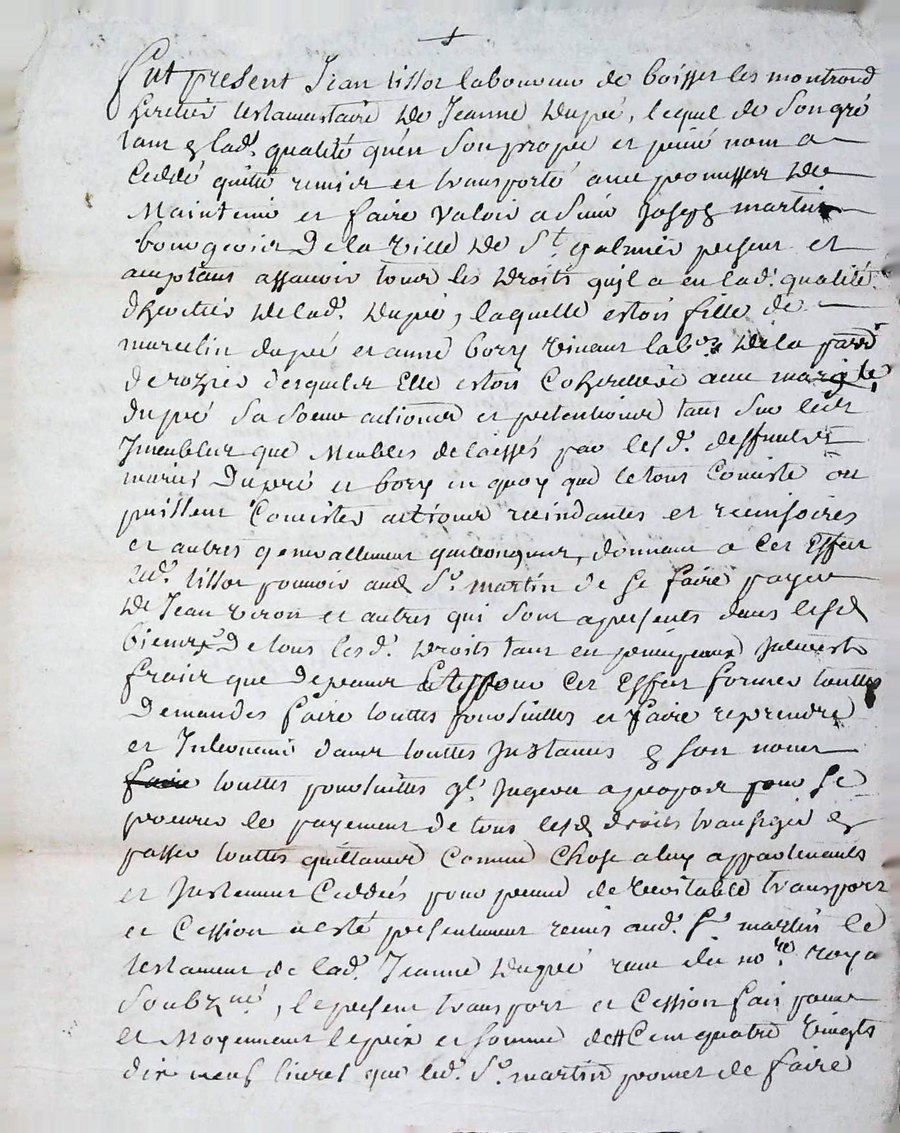 +
Fut present Jean tissot laboureur de boisset les montrond
heretier testamentaire de Jeanne dupré, lequel de son gré
tant en lad. qualité qu'en son propre et privé nom a
Ceddé quitté remis et transporté avec promesses de
Maintenir et faire valoir a Sieur Joseph martin
bourgeois de la ville de St. galmier present et
acceptant assavoir tous les droits quil a en lad. qualité
d'heretier de lad. dupré, laquelle estoit fille de
marcelin dupré et anne bory vivant labrs de la parre
de rozier desquels Elle estoit Coheretiere avec margte
dupré Sa Soeur actions et pretentions tant Sur les
Jmeubles que Meubles delaissés par lesd. deffunts
mariés Dupré et bory en quoy que le tout Consiste ou
puissent Consister actions recindantes et recisoires
et autres generallement quelconques, donnant a Cet Effet
led. tissot pouvoir aud Sr. martin de Se faire payer
de Jean et autres qui Sont a presents dans lesd
biens de tous lesd. droits tant en principaux Jnterests
fraix que depens pour Cet Effet former touttes
Demandes faire touttes poursuittes et faire reprendre
et Jntervenir dans touttes Jnstances en Son nom
faire touttes poursuittes ql. Jugera apropos pour Se
procurer le payement de tous lesd droits transiger et
passer touttes quittances Comme Chose a luy appartenants
et Justement Ceddés pour de veritable transport
et Cession a esté presentement remis aud. Sr martin le
testament de lad. Jeanne dupré recu du nore. royal
Soubzné, le present transport et Cession fait pour
et Moyennant le prix et Somme de Cent quatre vingts
dix neuf livres que led. Sr. martin promet de faire